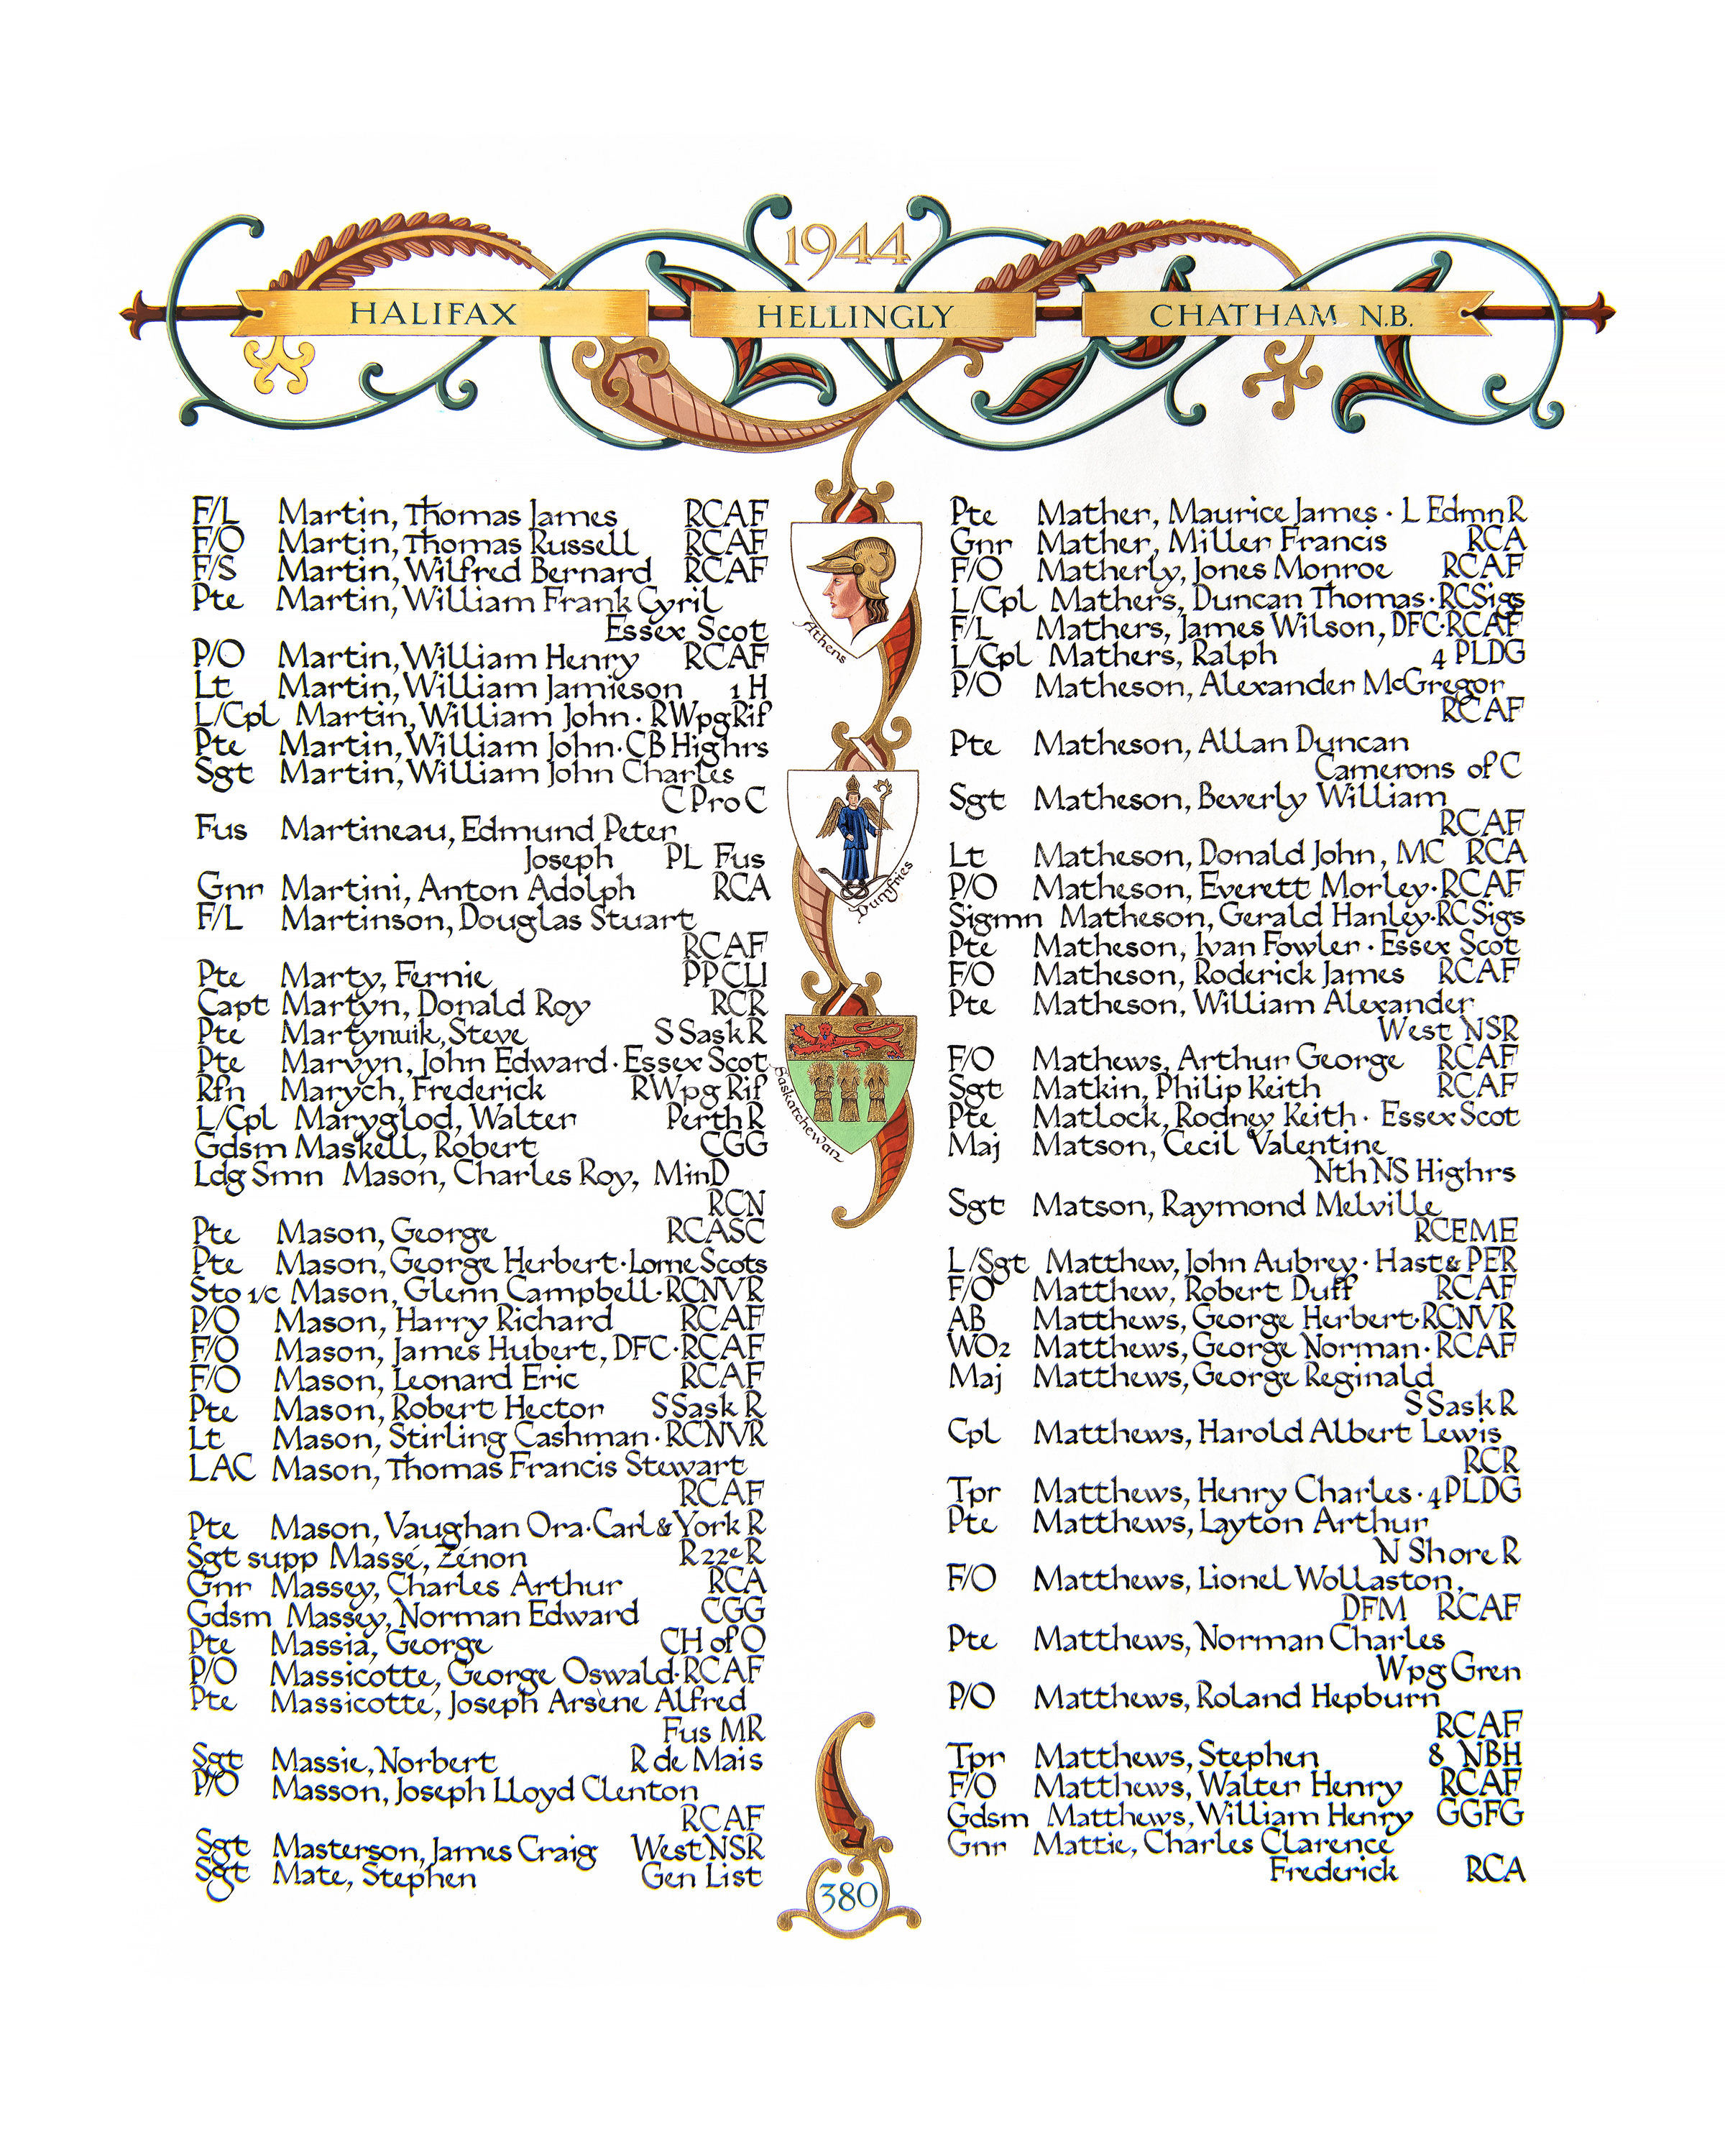 1944
HALIFAX
HELLINGLY
CHATHAM N.B.
F/L Martin, Thomas James RCAF
F/O Martin, Thomas Russell RCAF
F/S Martin, Wilfred Bernard RCAF
Pte Martin, William Frank Cyril
Essex Scot
P/O Martin, William Henry RCAF
Lt Martin, William Jamieson 1 H
L/Cpl Martin, William John · RWpgRif
Pte Martin, William John · CB Highrs
Sgt Martin, William John Charles
C Pro C
Fus Martineau, Edmund Peter
Joseph PL Fus
Gnr Martini, Anton Adolph RCA
F/L Martinson, Douglas Stuart
RCAF
Pte Marty, Fernie PPCLI
Capt Martyn, Donald Roy RCR
Pte Martynuik, Steve S Sask R
Pte Marvyn, John Edward · Essex Scot
Rfn Marych, Frederick RWpg Rif
L/Cpl Maryglod, Walter Perth R
Gdsm Maskell, Robert CGG
Ldg Smn Mason, Charles Roy, MinD
RCN
Pte Mason, George RCASC
Pte Mason, George Herbert · Lorne Scots
Sto 1/c Mason, Glenn Campbell · RCNVR
P/O Mason, Harry Richard RCAF
F/O Mason, James Hubert, DFC · RCAF
F/O Mason, Leonard Eric RCAF
Pte Mason, Robert Hector S Sask R
Lt Mason, Stirling Cashman · RCNVR
LAC Mason, Thomas Francis Stewart
RCAF
Pte Mason, Vaughan Ora · Carl & York R
Sgt supp Massé, Zénon R 22e R
Gnr Massey, Charles Arthur RCA
Gdsm Massey, Norman Edward CGG
Pte Massia, George CH of O
P/O Massicotte, George Oswald · RCAF
Pte Massicotte, Joseph Arsène Alfred
Fus MR
Sgt Massie, Norbert R de Mais
P/O Masson, Joseph Lloyd Clenton
RCAF
Sgt Masterson, James Craig West NSR
Sgt Mate, Stephen Gen List
Athens
Dumfries
Saskatchewan
380
Pte Mather, Maurice James · L Edmn R
Gnr Mather, Miller Francis RCA
F/O Matherly, Jones Monroe RCAF
L/Cpl Mathers, Duncan Thomas · RCSigs
F/L Mathers, James Wilson, DFC · RCAF
L/Cpl Mathers, Ralph 4 PLDG
P/O Matheson, Alexander McGregor
RCAF
Pte Matheson, Allan Duncan
Camerons of C
Sgt Matheson, Beverly William
RCAF
Lt Matheson, Donald John, MC RCA
P/O Matheson, Everett Morley · RCAF
Sigmn Matheson, Gerald Hanley · RC Sigs
Pte Matheson, Ivan Fowler · Essex Scot
F/O Matheson, Roderick James RCAF
Pte Matheson, William Alexander
West NSR
F/O Mathews, Arthur George RCAF
Sgt Matkin, Philip Keith RCAF
Pte Matlock, Rodney Keith · Essex Scot
Maj Matson, Cecil Valentine
Nth NS Highrs
Sgt Matson, Raymond Melville
RCEME
L/Sgt Matthew, John Aubrey · Hast & PER
F/O Matthew, Robert Duff RCAF
AB Matthews, George Herbert · RCNVR
WO2 Matthews, George Norman · RCAF
Maj Matthews, George Reginald
S Sask R
Cpl Matthews, Harold Albert Lewis
RCR
Tpr Matthews, Henry Charles · 4 PLDG
Pte Matthews, Layton Arthur
N Shore R
F/O Matthews, Lionel Wollaston,
DFM RCAF
Pte Matthews, Norman Charles
Wpg Gren
P/O Matthews, Roland Hepburn
RCAF
Tpr Matthews, Stephen 8 NBH
F/O Matthews, Walter Henry RCAF
Gdsm Matthews, William Henry GGFG
Gnr Mattie, Charles Clarence
Frederick RCA